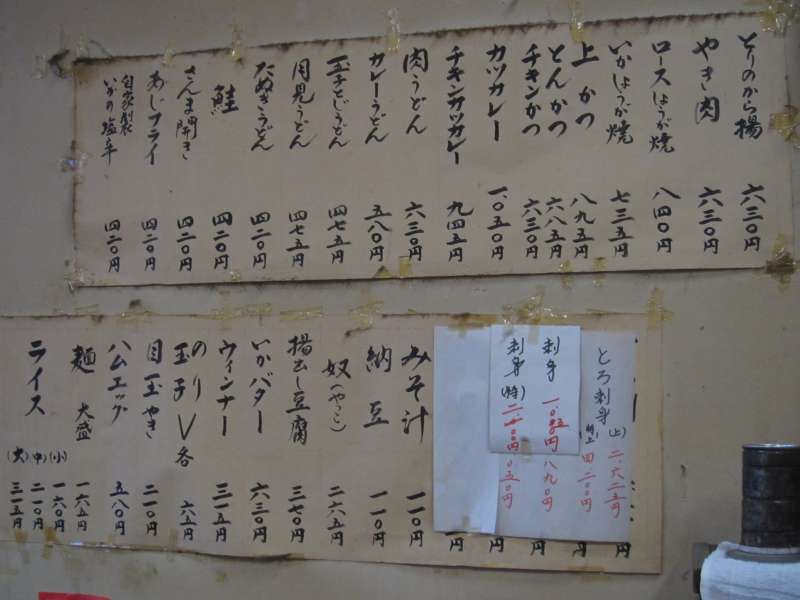 とりのから揚 六三〇円
やき肉 六三〇円
ロースしょうが焼 八四〇円
いかしょうが焼 七三五円
上かつ 八九五円
とんかつ 六八五円
チキンかつ 六三〇円
カツカレー 一、〇五〇円
チキンカツカレー 九四五円
肉うどん 六三〇円
カレーうどん 五八〇円
玉子とじうどん 四七五円
月見うどん 四七五円
たぬきうどん 四二〇円
鮭 四二〇円
さんま開き 四二〇円
あじフライ 四二〇円
自家製いかの塩辛 四二〇円
とろ刺身
(上) 二、六二五円
(特上) 四、二〇〇円
刺身
刺身(特)
みそ汁 一一〇円
納豆 一一〇円
奴(やっこ) 二六五円
揚出し豆腐 三七〇円
いかバター 六三〇円
ウィンナー 三一五円
のり
玉子 各 六五円
目玉やき 二一〇円
ハムエッグ 五八〇円
麺大盛 一六五円
ライス
(小) 一六〇円
(中) 二一〇円
(大) 三一五円